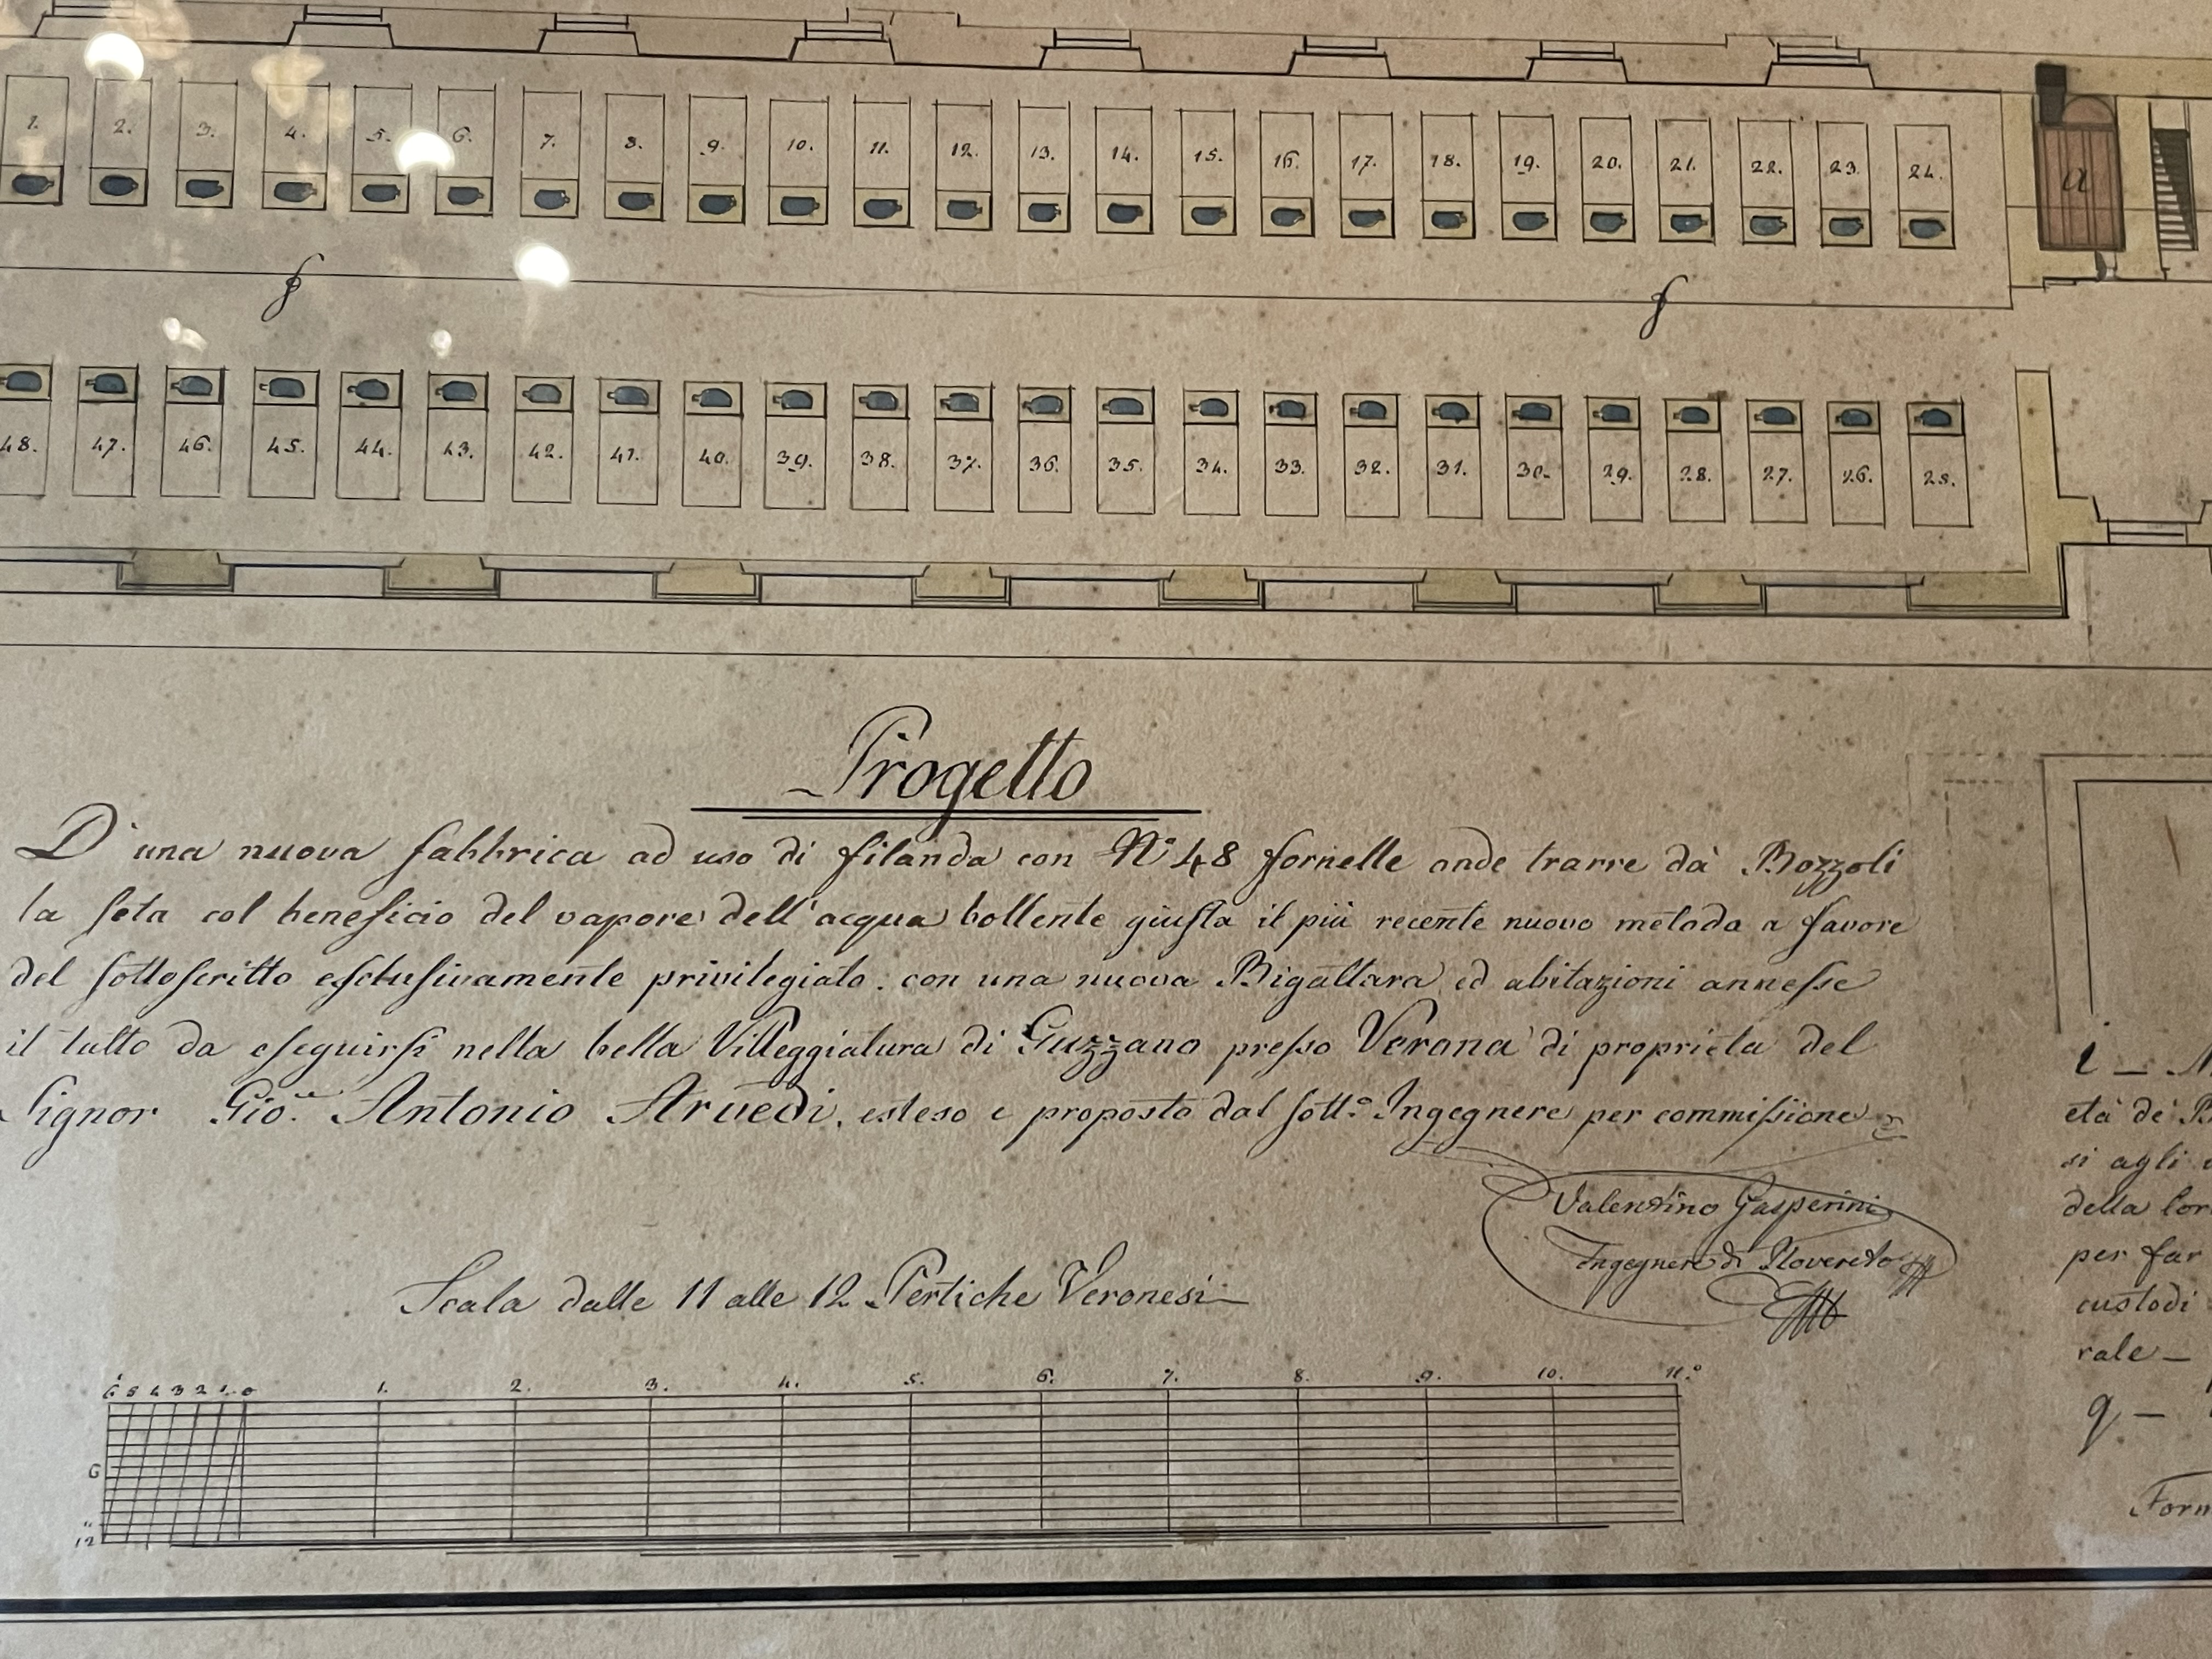 1. 2. 3. 4. 5. 6. 7. 8. 9. 10. 11. 12. 13. 14. 15. 16. 17. 18. 19. 20. 21. 22. 23. 24. a
f f
48. 47. 46. 45. 44. 43. 42. 41. 40. 39. 38. 37. 36. 35. 34. 33. 32. 31. 30. 29. 28. 27. 26. 25.
Progetto
D'una nuova fabbrica ad uso di filanda con N.º 48 fornelle onde trarre dà Bozzoli
la seta col beneficio del vapore dell'acqua bollente giusta il più recente nuovo metodo a favore
del sottoscritto esclusivamente privilegiato. con una nuova Bigattara ed abitazioni annesse
il tutto da eseguirsi nella bella Villeggiatura di Guzzano presso Verona di proprieta del
Signor Gio. Antonio Arvedi, esteso e proposto dal sott.º Ingegnere per commissione
Valentino Gasperini
Ingegnere di Rovereto
Scala dalle 11 alle 12 Pertiche Veronesi
6 5 4 3 2 1. 0 1. 2. 3. 4. 5. 6. 7. 8. 9. 10. 11.º
6
12
i —
età de'
si agli
della
per far
custodi
rale —
q —